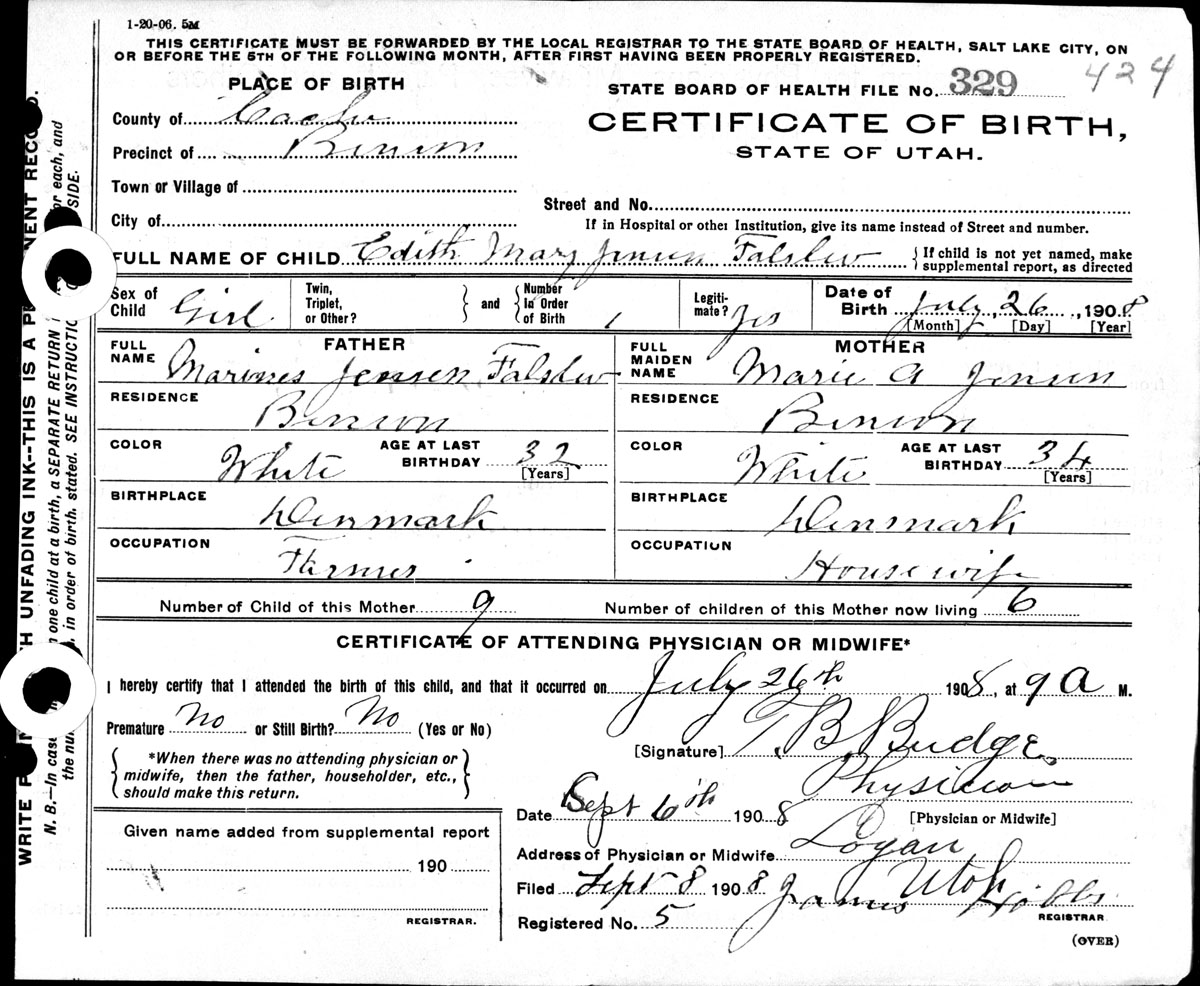 1-20-06. 5M
THIS CERTIFICATE MUST BE FORWARDED BY THE LOCAL REGISTRAR TO THE STATE BOARD OF HEALTH, SALT LAKE CITY, ON
OR BEFORE THE 5TH OF THE FOLLOWING MONTH, AFTER FIRST HAVING BEEN PROPERLY REGISTERED.
PLACE OF BIRTH
STATE BOARD OF HEALTH FILE No. 329 424
County of Cache
CERTIFICATE OF BIRTH,
Precinct of Benson
STATE OF UTAH.
Town or Village of
Street and No.
City of
If in Hospital or other Institution, give its name instead of Street and number.
FULL NAME OF CHILD Edith Mary Jensen Falslev { If child is not yet named, make
supplemental report, as directed
Sex of Child Girl
Twin, Triplet, or Other?
} and { Number In Order of Birth 1
Legiti-mate? Yes
Date of Birth July 26, 1908
[Month] [Day] [Year]
FATHER
FULL NAME Marines Jensen Falslev
RESIDENCE
Benson
COLOR White AGE AT LAST BIRTHDAY 32
[Years]
BIRTHPLACE
Denmark
OCCUPATION
Farmer
MOTHER
FULL MAIDEN NAME Marie A Jensen
RESIDENCE
Benson
COLOR White AGE AT LAST BIRTHDAY 34
[Years]
BIRTHPLACE
Denmark
OCCUPATION
Housewife
Number of Child of this Mother 9 Number of children of this Mother now living 6
CERTIFICATE OF ATTENDING PHYSICIAN OR MIDWIFE*
I hereby certify that I attended the birth of this child, and that it occurred on July 26th 1908, at 9 A M.
Premature No or Still Birth? No (Yes or No)
{ *When there was no attending physician or
midwife, then the father, householder, etc.,
should make this return. }
[Signature] T. B. Budge.
Physician
Date Sept 6th 1908 [Physician or Midwife]
Given name added from supplemental report
190
REGISTRAR.
Address of Physician or Midwife Logan
Utah
Filed Sept 8 1908 James Hibbs
REGISTRAR
Registered No. 5
(OVER)
WRITE P TH UNFADING INK--THIS IS A P NENT RECO D.
N. B.—In case one child at a birth, a SEPARATE RETURN or each, and
the nu , in order of birth. stated. SEE INSTRUCTIO SIDE.